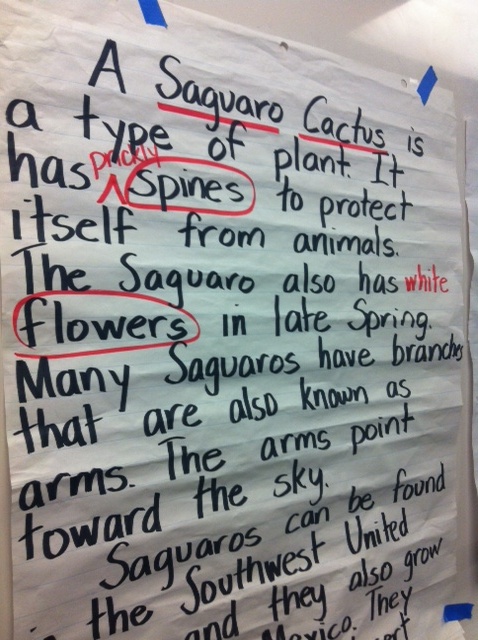 A Saguaro Cactus is
a type of plant. It
has prickly spines to protect
itself from animals.
The Saguaro also has white
flowers in late Spring.
Many Saguaros have branches
that are also known as
arms. The arms point
toward the sky.
Saguaros can be found
the Southwest United
and they also grow
Mexico. They